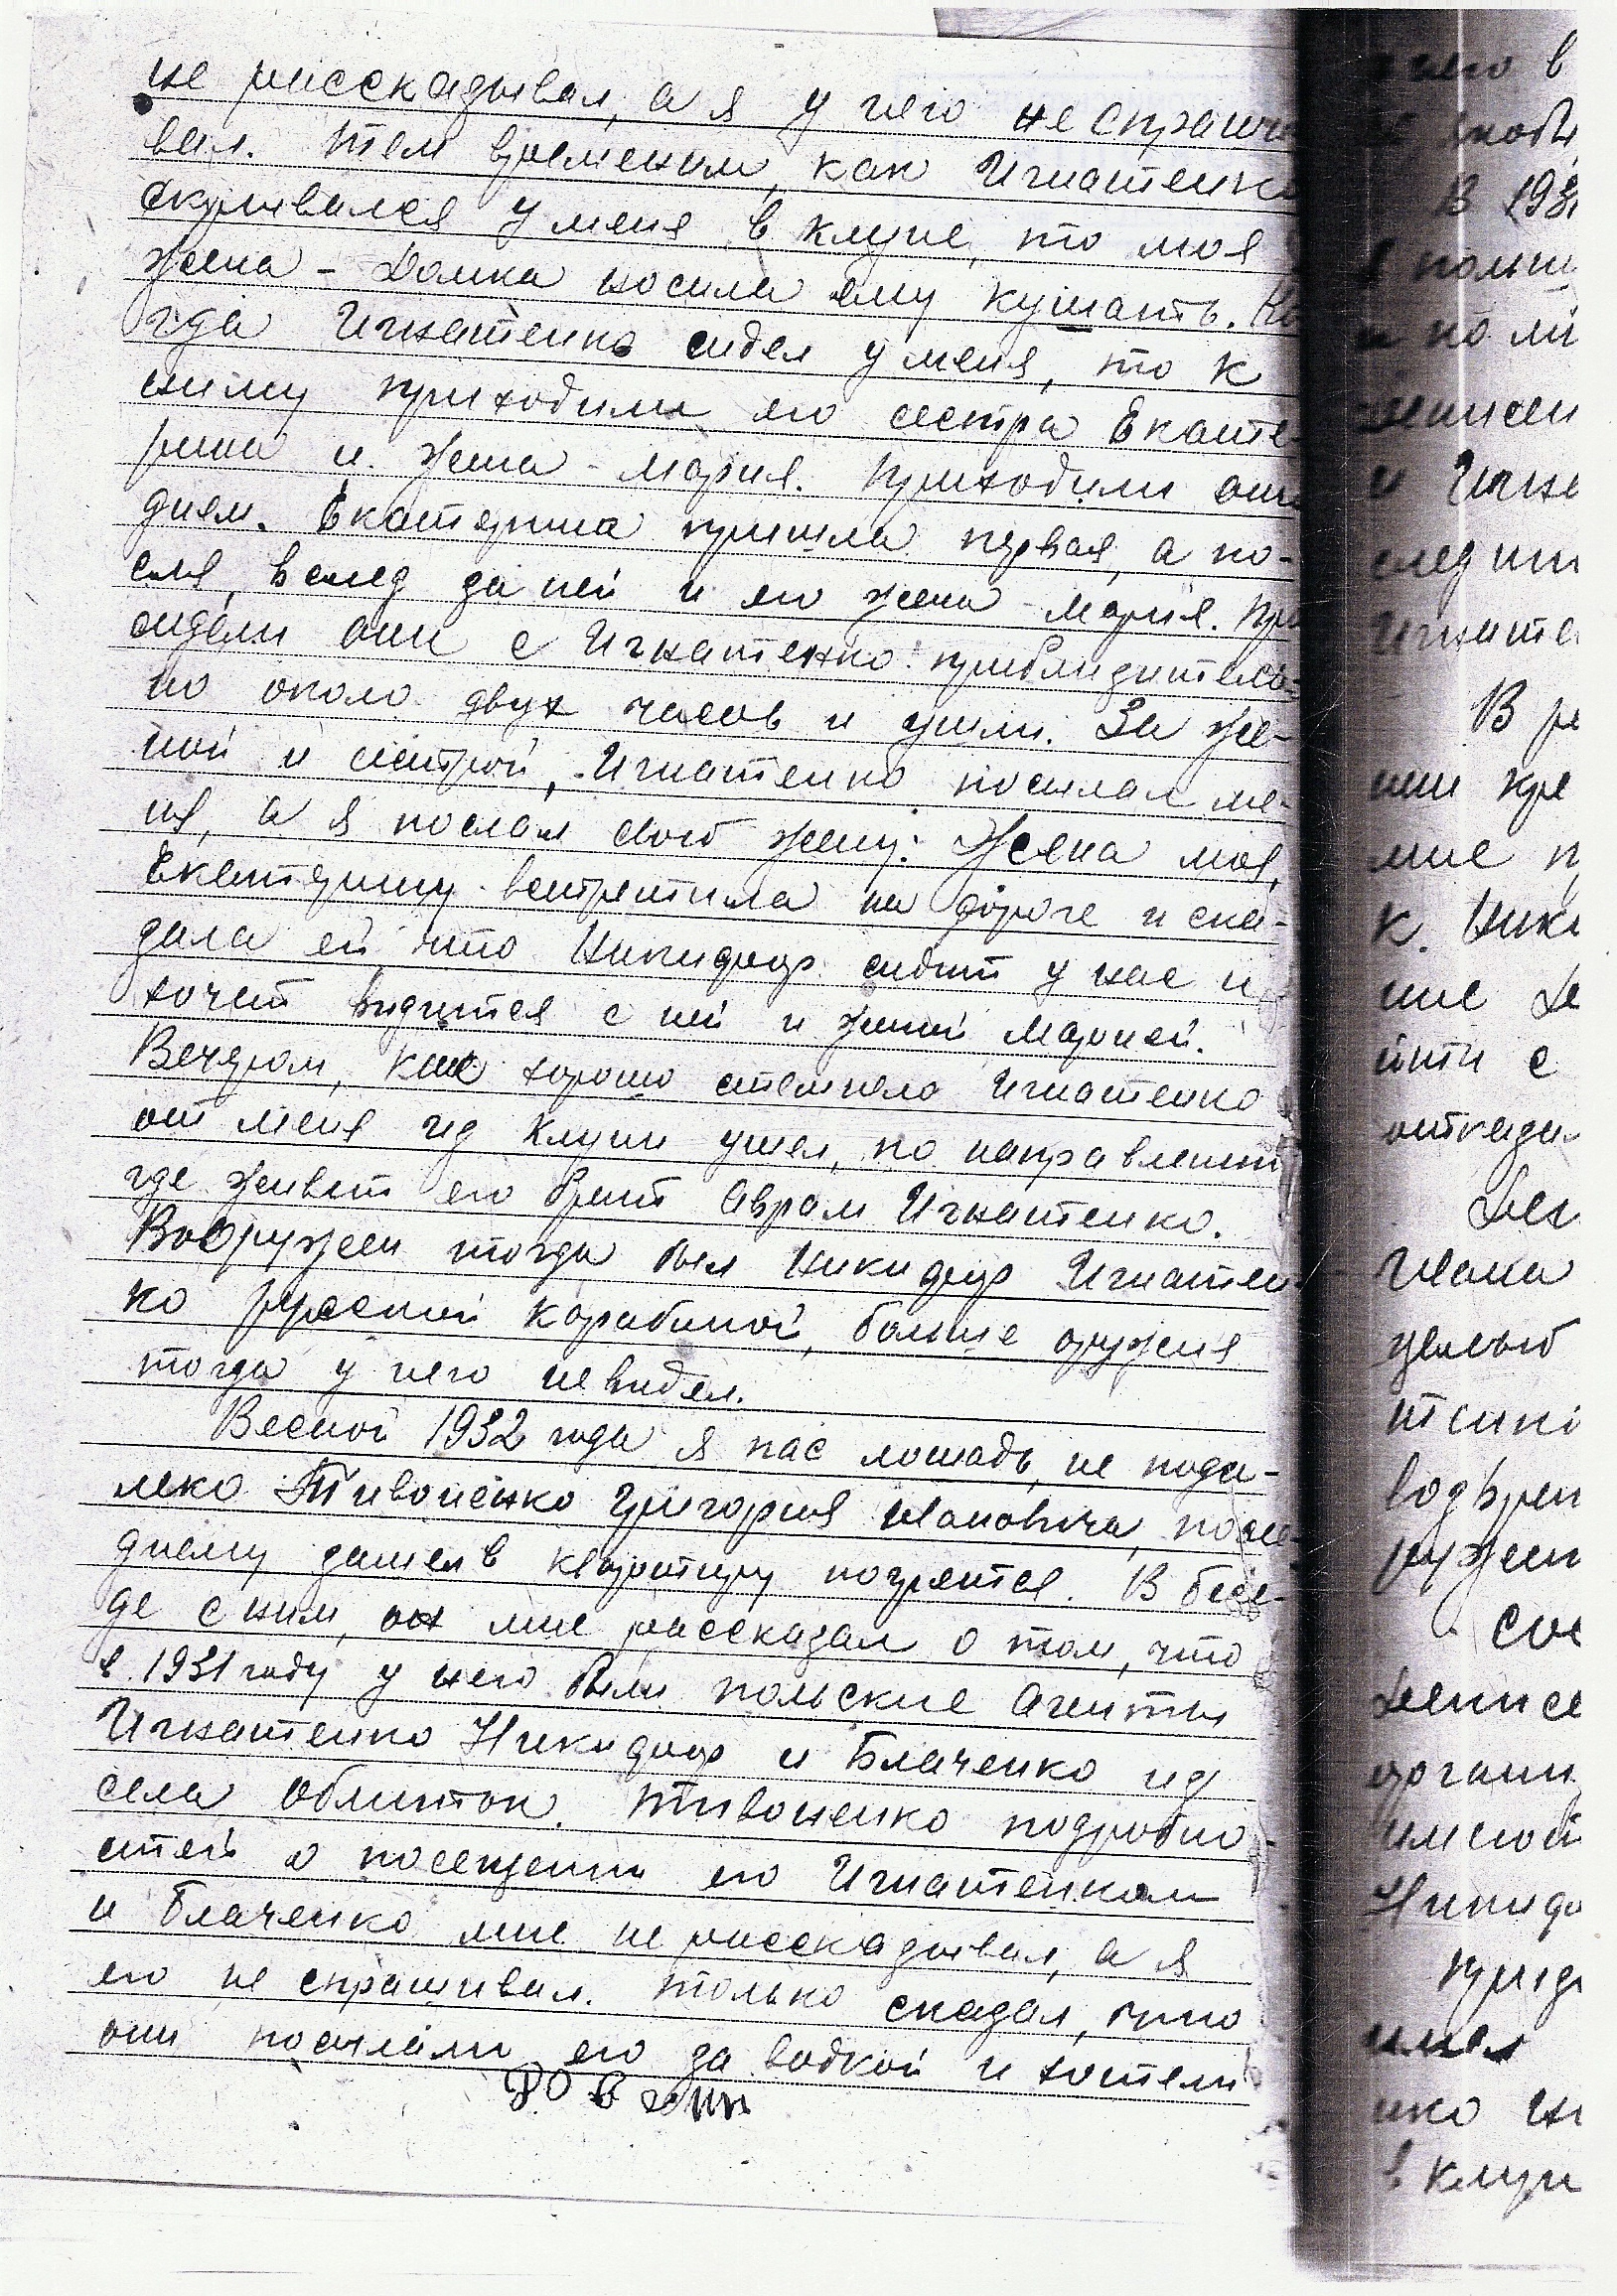 не рассказывал, а я у него не спраши
вал. Тем временем, как Игнатенко
скрывался у меня в клуне, то моя
жена - Домка носила ему кушать. Ко
гда Игнатенко сидел у меня, то к
нему приходили его сестра Екате-
рина и жена - Мария. Приходили они
днем. Екатерина пришла первая, а по-
сля, вслед за ней и его жена - Мария. Про
сидели они с Игнатенко приблизитель-
но около двух часов и ушли. За же-
ной и сестрой, Игнатенко посылал ме-
ня, а я послал свою жену. Жена моя,
Екатерину встретила на дороге и ска-
зала ей, что Никифор сидит у нас и
хочет видится с ней и женой Марией.
Вечером, как хорошо стемнело Игнатенко
от меня из клуни ушел, по направлению
где живет его брат Аврам Игнатенко.
Вооружен тогда был Никифор Игнатен-
ко русской карабиной, больше оружия
тогда у него не видел.
Весной 1932 года я пас лошадь, не пода-
леко Тивоненко Григория Ивановича, после-
днему зашел в квартиру погрется. В бесе-
де с ним, он мне рассказал о том, что
в 1931 году у него были польские агенты
Игнатенко Никифор и Блаченко из
села Облитки. Тивоненко подробно-
стей о посещении его Игнатенком
и Блаченко мне не рассказывал, а я
его не спрашивал. Только сказал, что
они посылали его за водкой и хотели
него в
В 1931
и Игна
след
Игнате
В ре
мне п
к. Ники
мне Де
йти с
отказал
Ивана
целью
Денисе
Никифо
имел
нко Ни
в клун